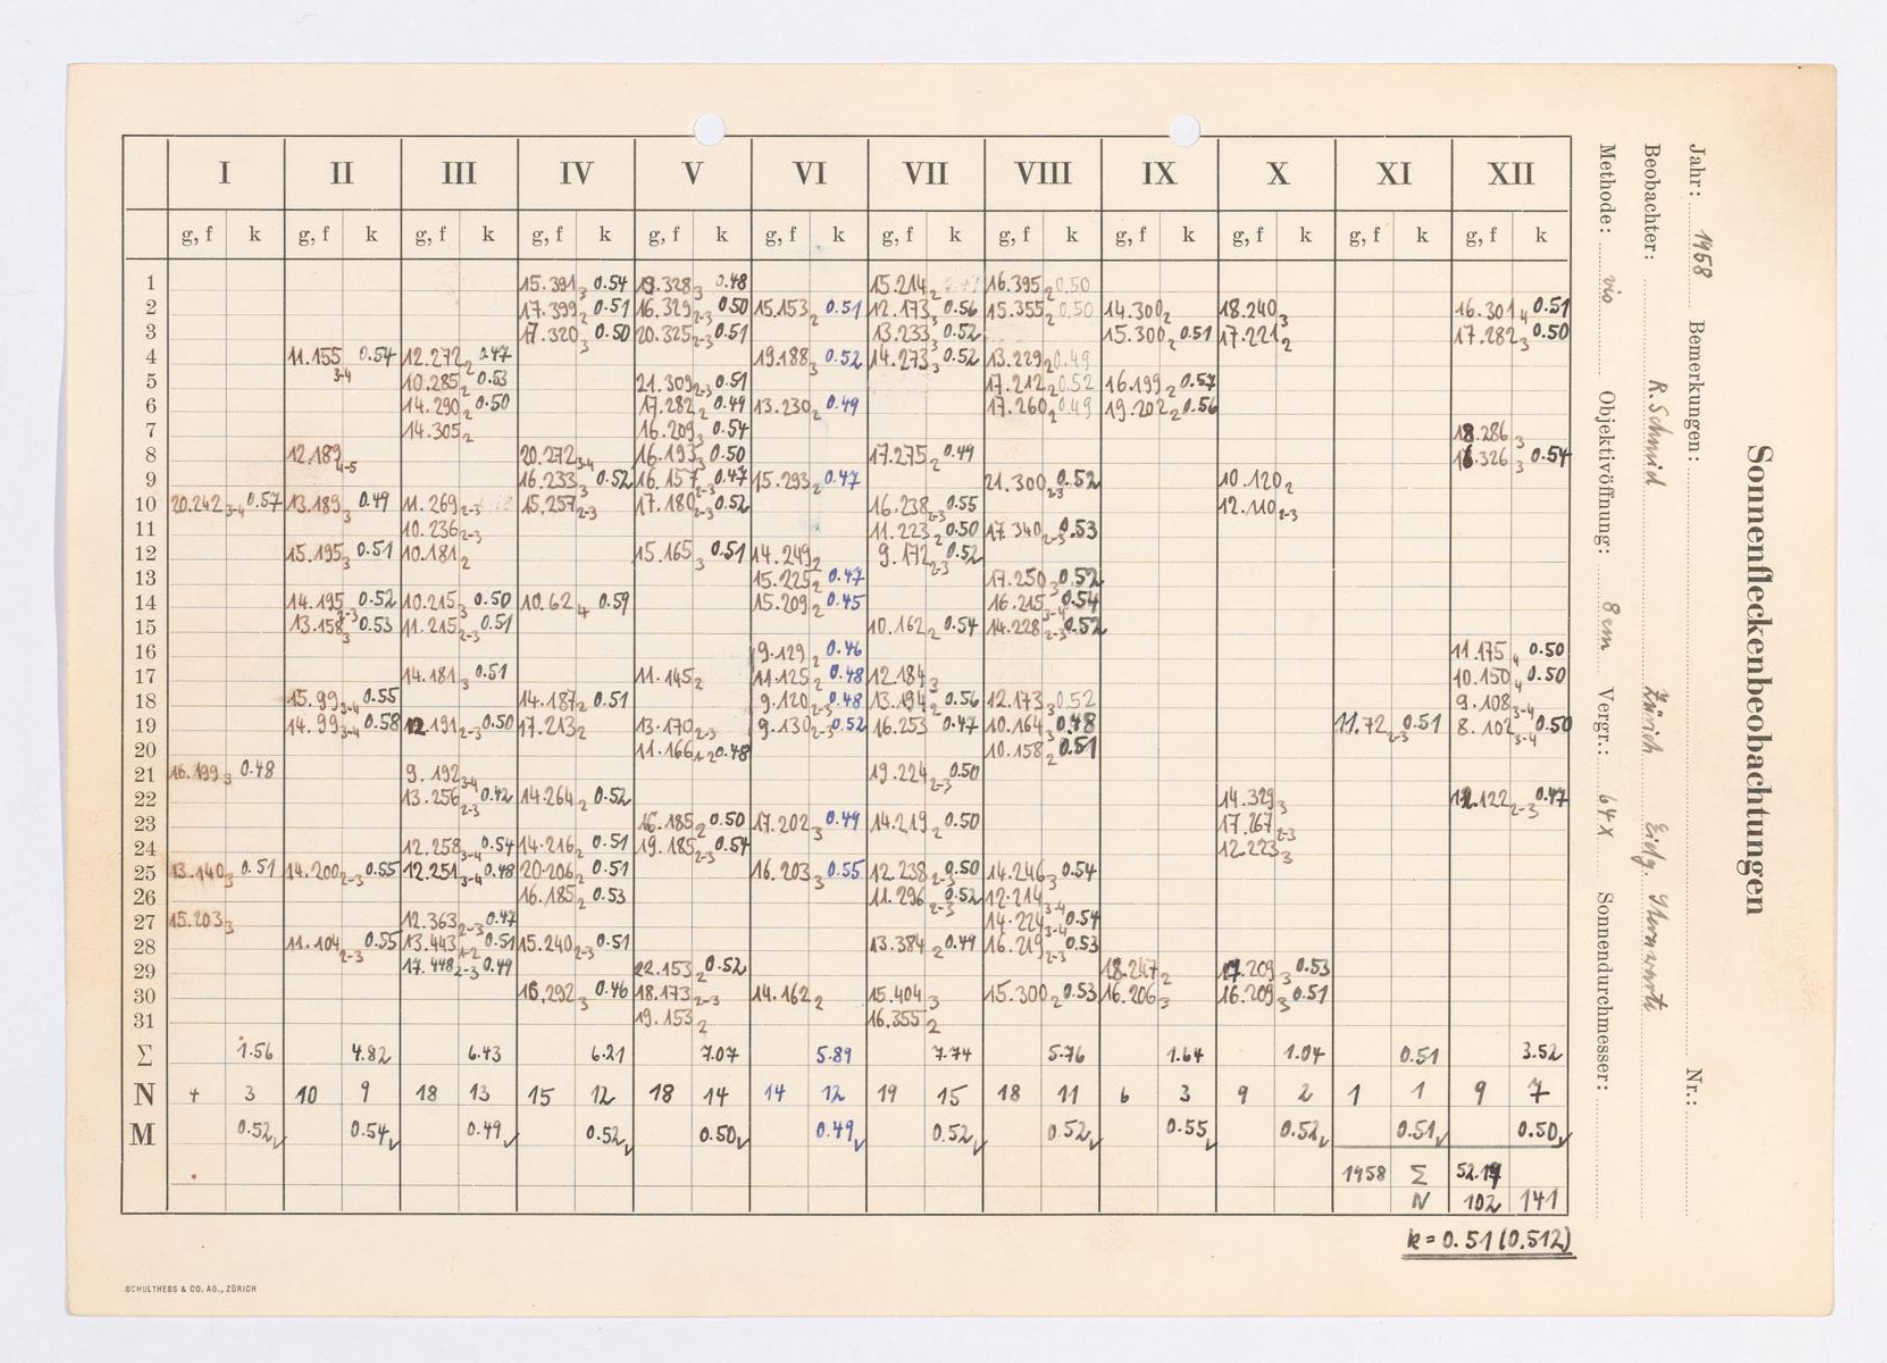 Sonnenfleckenbeobachtungen
Jahr: 1958 Bemerkungen: Nr.:
Beobachter: R. Schmid Zürich Eidg. Sternwarte
Methode: vis Objektivöffnung: 8 cm Vergr.: 64 x Sonnendurchmesser:
I II III IV V VI VII VIII IX X XI XII
g, f k g, f k g, f k g, f k g, f k g, f k g, f k g, f k g, f k g, f k g, f k g, f k
1 15.391 3 0.54 19.328 3 0.48 15.214 2 16.395 2 0.50
2 17.399 2 0.51 16.329 2-3 0.50 15.153 2 0.51 12.173 3 0.56 15.355 2 0.50 14.300 2 18.240 3 16.301 4 0.51
3 17.320 3 0.50 20.325 2-3 0.51 13.233 3 0.52 15.300 2 0.51 17.221 2 17.282 3 0.50
4 11.155 3-4 0.54 12.272 2 0.47 19.188 3 0.52 14.273 3 0.52 13.229 2 0.49
5 10.285 2 0.53 21.309 2-3 0.51 17.212 2 0.52 16.199 2 0.57
6 14.290 2 0.50 17.282 2 0.49 13.230 2 0.49 17.260 2 0.49 19.202 2 0.56
7 14.305 2 16.209 3 0.54 18.286 3
8 12.189 4-5 20.272 3-4 16.193 3 0.50 17.275 2 0.49 16.326 3 0.54
9 16.233 3 0.52 16.157 2-3 0.47 15.293 2 0.47 21.300 2-3 0.52 10.120 2
10 20.242 3-4 0.57 13.189 3 0.49 11.269 2-3 15.257 2-3 17.180 2-3 0.52 16.238 2-3 0.55 12.110 2-3
11 10.236 2-3 11.223 2 0.50 17.340 2-3 0.53
12 15.195 3 0.51 10.181 2 15.165 3 0.51 14.249 2 9.172 2-3 0.52
13 15.225 2 0.47 17.250 3 0.52
14 14.195 2-3 0.52 10.215 3 0.50 10.62 4 0.59 15.209 2 0.45 16.215 3-4 0.54
15 13.158 3 0.53 11.215 2-3 0.51 10.162 2 0.54 14.228 2-3 0.52
16 9.129 2 0.46 11.175 4 0.50
17 14.181 3 0.51 11.145 2 11.125 2 0.48 12.184 3 10.150 4 0.50
18 15.99 3-4 0.55 14.187 2 0.51 9.120 2-3 0.48 13.194 2 0.56 12.173 3 0.52 9.108 3-4
19 14.99 3-4 0.58 12.191 2-3 0.50 17.213 2 13.170 2-3 9.130 2-3 0.52 16.253 0.47 10.164 3 0.48 11.72 2-3 0.51 8.102 3-4 0.50
20 11.166 1-2 0.48 10.158 2 0.51
21 16.199 3 0.48 9.192 3-4 19.224 2-3 0.50
22 13.256 2-3 0.42 14.264 2 0.52 14.329 3 12.122 2-3 0.47
23 16.185 2 0.50 17.202 3 0.49 14.219 2 0.50 17.267 2-3
24 12.258 3-4 0.54 14.216 2 0.51 19.185 2-3 0.54 12.223 3
25 13.140 3 0.51 14.200 2-3 0.55 12.251 3-4 0.48 20.206 2 0.51 16.203 3 0.55 12.238 2-3 0.50 14.246 3 0.54
26 16.185 2 0.53 11.296 2-3 0.52 12.214 3-4
27 15.203 3 12.363 2-3 0.47 14.224 3-4 0.54
28 11.104 2-3 0.55 13.443 1-2 0.51 15.240 2-3 0.51 13.384 2 0.49 16.219 2-3 0.53
29 17.448 2-3 0.49 22.153 2 0.52 18.247 2 17.209 3 0.53
30 16.292 3 0.46 18.173 2-3 14.162 2 15.404 3 15.300 2 0.53 16.206 3 16.209 3 0.51
31 19.153 2 16.355 2
Σ 1.56 4.82 6.43 6.21 7.07 5.89 7.74 5.76 1.64 1.04 0.51 3.52
N 4 3 10 9 18 13 15 12 18 14 14 12 19 15 18 11 6 3 9 2 1 1 9 7
M 0.52 0.54 0.49 0.52 0.50 0.49 0.52 0.52 0.55 0.52 0.51 0.50
1958 Σ 52.19
N 102 141
k = 0.51 (0.512)
SCHULTHESS & CO. AG., ZÜRICH